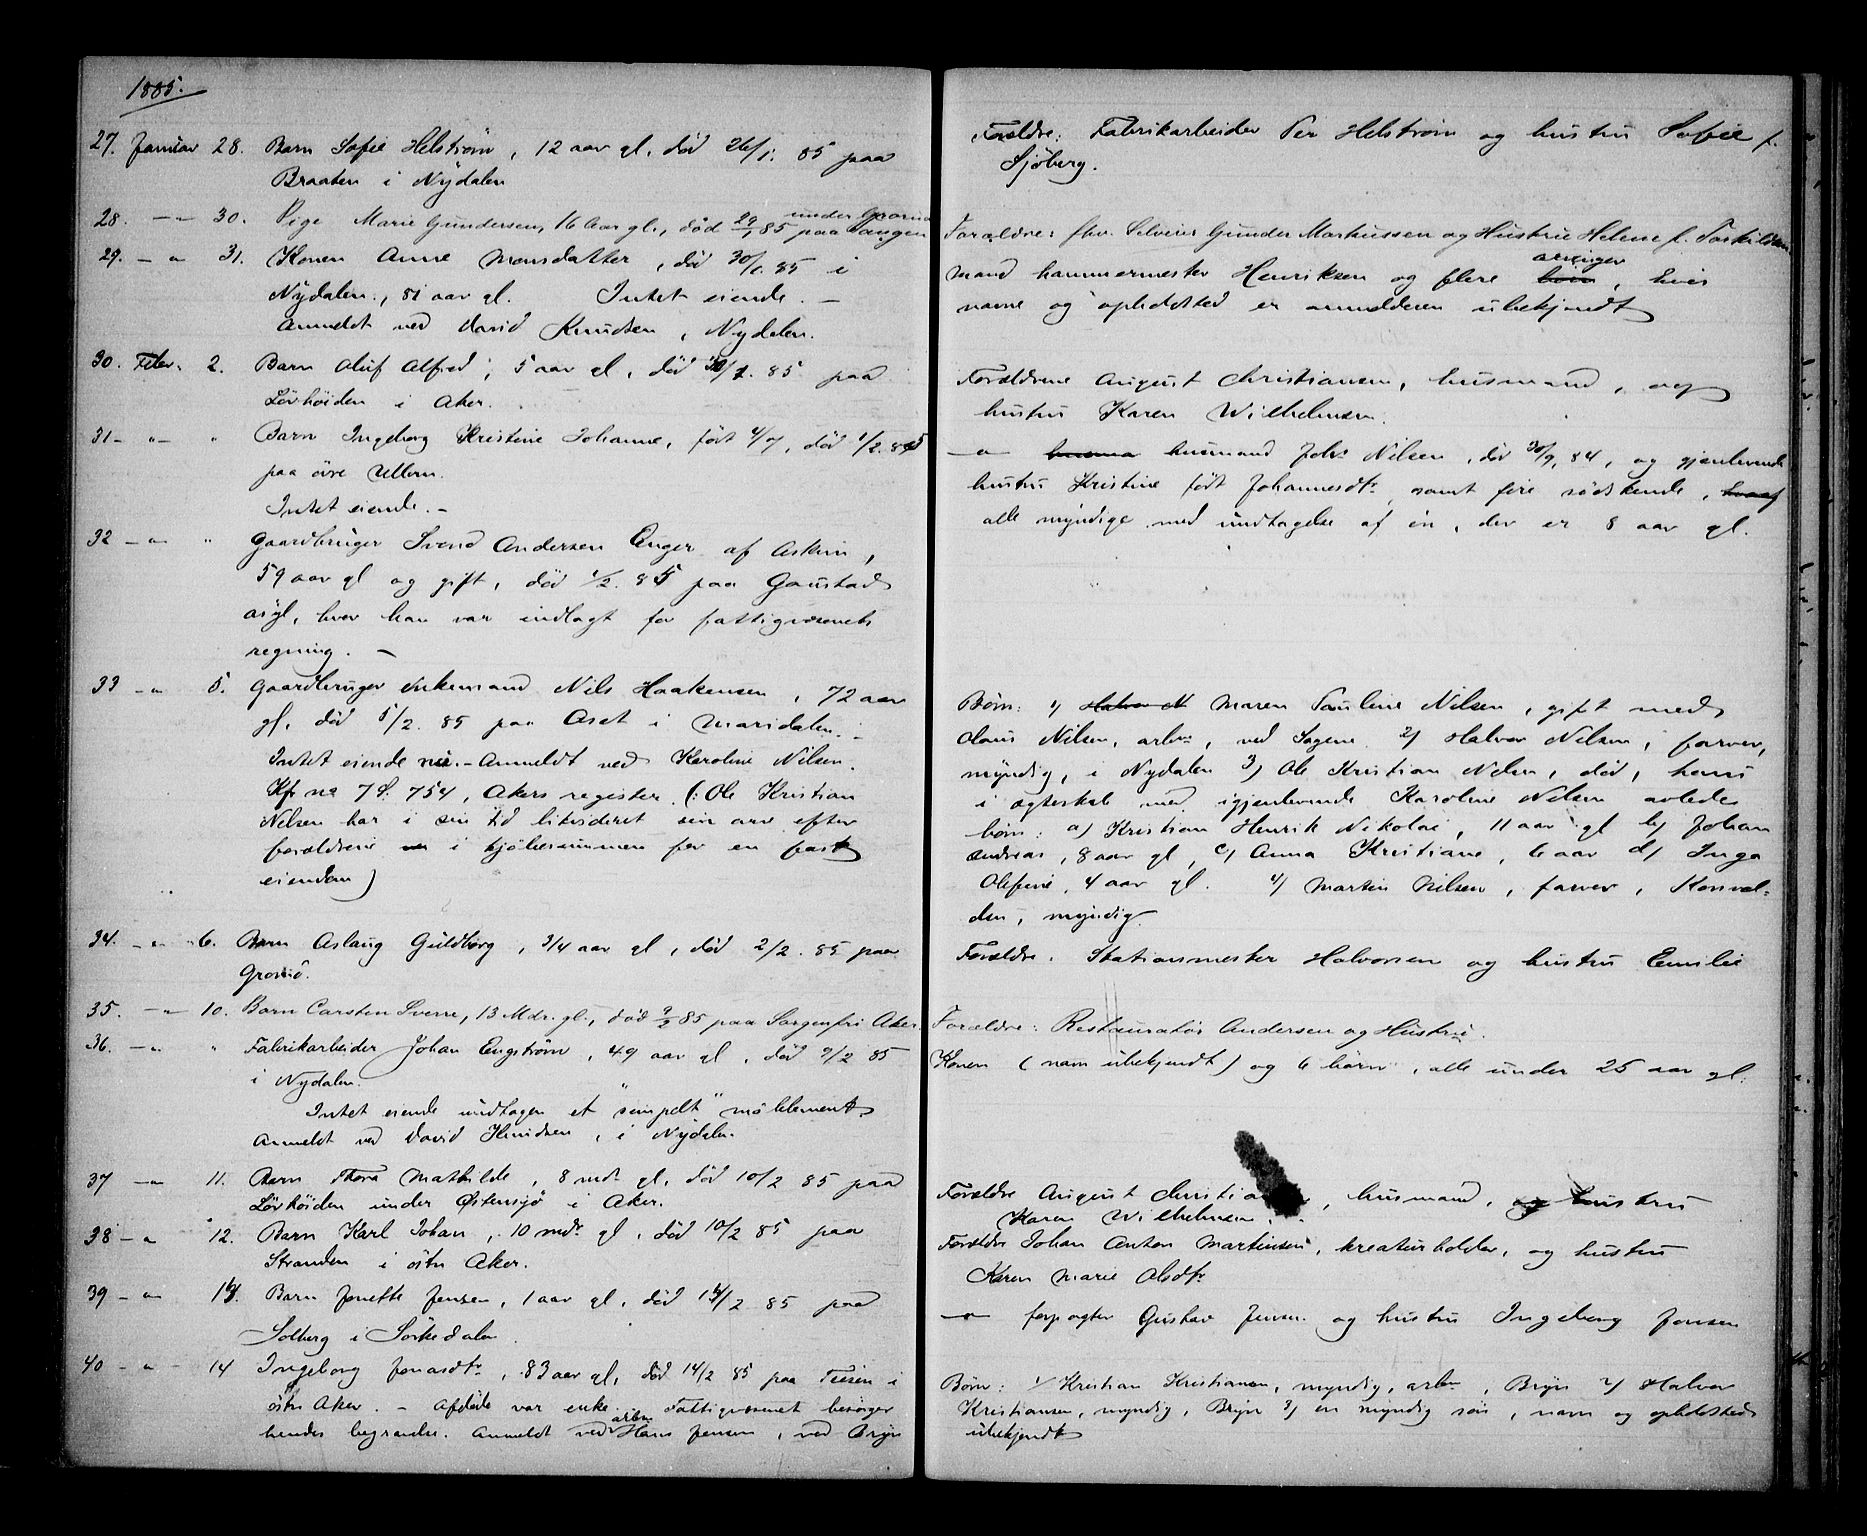 1885.
27. Januar 28. Barn Sofie Helstrøm, 12 aar gl. død 26/1. 85 paa
Braaten i Nydalen
28. -"- 30. Pige Marie Gundersen, 16 Aar gl., død 29/1 85 paa Tangen
under Grorud
29. -"- 31. Konen Anne Monsdatter, død 30/1. 85 i
Nydalen., 81 aar gl. Intet eiende. -
Anmeldt ved David Knudsen, Nydalen.
30. Febr. 2. Barn Oluf Alfred, 5 aar gl, død 30/1. 85 paa
Lövhöiden i Aker.
31 - " - " Barn Ingeborg Kristine Johanne, født 4/7, død 1/2. 85
paa övre Ullern.
Intet eiende. -
32 - " - " Gaardbruger Svend Andersen Enger af Askim,
59 aar gl og gift, død 1/2. 85 paa Gaustad
asyl, hvor han var indlagt for fattigvæsenets
regning. -
33 - " 5. Gaardbruger enkemand Nils Haakensen, 72 aar
gl, død 5/2. 85 paa Aset i Maridalen. -
Intet eiende nu. - Anmeldt ved Karoline Nilsen.
Kfr no 7 S. 754, Akers register. (: Ole Kristian
Nilsen har i sin tid likvideret sin arv efter
forældrene i kjöbesummen for en fast
eiendom)
34. - " - 6. Barn Aslaug Guldborg, 3/4 aar gl, død 2/2. 85 paa
Grorud.
35. - " 10. Barn Carsten Sverre, 13 Mdr. gl., død 9/2 85 paa Sorgenfri Aker.
36. - " " Fabrikarbeider Johan Engstrøm, 49 aar gl, død 9/2 85
i Nydalen.
Intet eiende undtagen et "simpelt" möblement
Anmeldt ved David Knudsen, i Nydalen.
37 - " 11. Barn Thora Mathilde, 8 mdr gl. død 10/2 85 paa
Lövhöiden under Østensjö i Aker.
38 - " 12. Barn Karl Johan, 10 mdr gl. død 10/2 85 paa
Stranden i östre Aker.
39 - " 14. Barn Jonette Jensen, 1 aar gl, død 14/2 85 paa
Solberg i Sörkedalen.
40 - " - 14 Ingeborg Jonasdtr, 83 aar gl, død 14/2 85 paa Teisen i
östre Aker. - Afdöde var enke. Fattigvæsenet besörger
hendes begravelse. Anmeldt ved arbm Hans Jensen, ved Bryn
Forældre: Fabrikarbeider Per Helström og hustru Sofie f.
Sjöberg.
Forældre: fhv. Selveier Gunder Markussen og Hustrue Helene f. Torkildsen
Mand hammermester Henriksen og flere börn arvinger, hvis
navne og opholdsted er anmelderen ubekjendt
Forældrene August Christiansen, husmand, og
hustru Karen Wilhelmsen.
-"- husma husmand Johs Nilsen, død 30/9, 84, og gjenlevende
hustru Kristine født Johannesdtr samt fire södskende, hvoraf
alle myndige med undtagelse af en, der er 8 aar gl.
Børn: 1/ Halvor N Maren Pauline Nilsen, gift med
Claus Nilsen, arbm, ved Sagene 2/ Halvor Nilsen, farver,
myndig, i Nydalen 3/ Ole Kristian Nilsen, død, hans
i ægteskab med igjenlevende Karoline Nilsen avlede
børn: a) Kristian Henrik Nikolai, 11 aar gl b) Johan
Andreas, 8 aar gl, c) Anna Kristiane, 6 aar d) Inga
Olefine, 4 aar gl. 4/ Martin Nilsen, farver, Korsvol-
den, myndig.
Forældre: Stationsmester Halvorsen og hustru Emilie
Forældre: Restauratør Andersen og Hustrue.
Konen (navn ubekjendt) og 6 börn, alle under 25 aar gl.
Forældre August Christiansen, husmand, og hustru
Karen Wilhelmsen.
Forældre Johan Anton Martinsen, kreaturholder, og hustru
Karen Marie Olsdtr
-"- forpagter Gustav Jensen og hustru Ingeborg Jensen
Børn: 1/ Kristian Kristiansen, myndig, arbm, Bryn 2/ Halvor
Kristiansen, myndig, Bryn 3/ en myndig sön, navn og opholdsted
ubekjendt